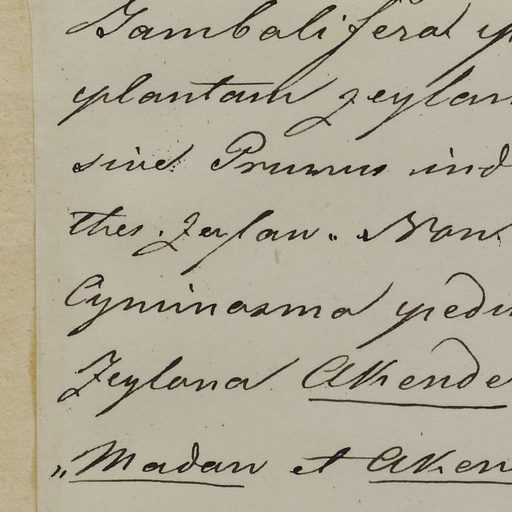 Jambolifera p
plantam zeylan
sive Prunus ind
thes. Zeylan. Nom
Cyminosma pedu
Zeylana Akende
„Madan et Aken